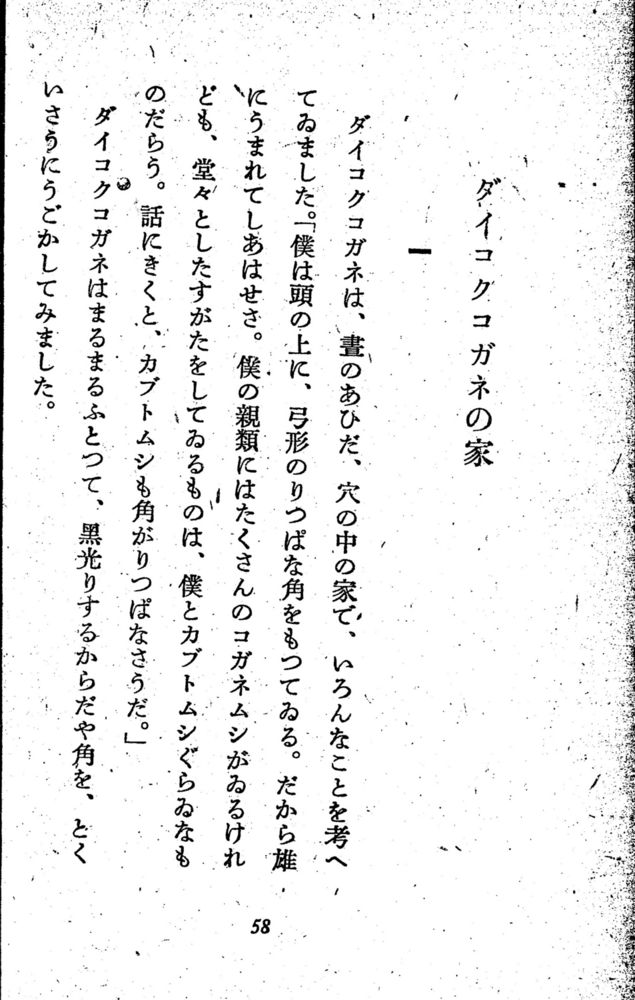 ダイコクコガネの家
一
ダイコクコガネは、晝のあひだ、穴の中の家で、いろんなことを考へ
てゐました。「僕は頭の上に、弓形のりつぱな角をもつてゐる。だから雄
にうまれてしあはせさ。僕の親類にはたくさんのコガネムシがゐるけれ
ども、堂々としたすがたをしてゐるものは、僕とカブトムシぐらゐなも
のだらう。話にきくと、カブトムシも角がりつぱなさうだ。」
ダイコクコガネはまるまるふとつて、黑光りするからだや角を、とく
いさうにうごかしてみました。
58